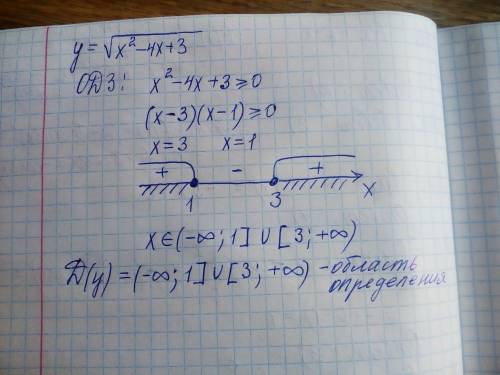 y = √(x² − 4x + 3)
ОДЗ: x² − 4x + 3 ⩾ 0
(x − 3)(x − 1) ⩾ 0
x = 3 x = 1
+ − +
1 3 x
x ∈ (−∞; 1] ∪ [3; +∞)
D(y) = (−∞; 1] ∪ [3; +∞) − область
определения